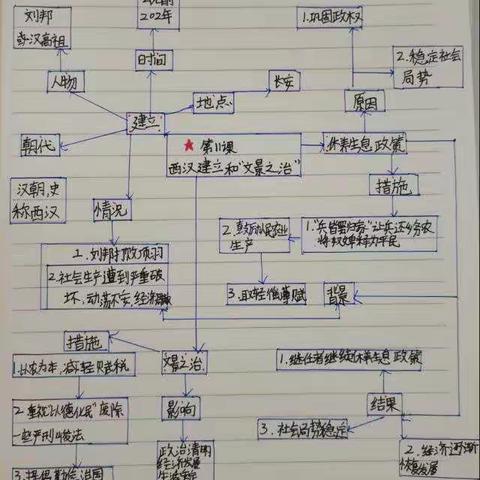 刘邦
汉高祖
202年
1.巩固政权
2.稳定社会
局势
时间
人物
地点
长安
原因
建立
朝代
★ 第11课
西汉建立和“文景之治”
休养生息政策
汉朝,史
称西汉
情况
措施
1.“兵皆罢归家”让兵还乡务农
将奴婢释为平民
2.
生产
1.刘邦打败项羽
2.社会生产遭到严重破
坏,动荡不安,经济
3.取轻徭薄赋
背景
措施
文景之治
1.以农为本,减轻赋税
1.继任者继续休养生息政策
2.重视“以德化民”废除
一些严刑峻法
影响
结果
3.社会局势稳定
政治清明
经济发展
2.经济逐渐
恢复发展
3.提倡勤俭治国